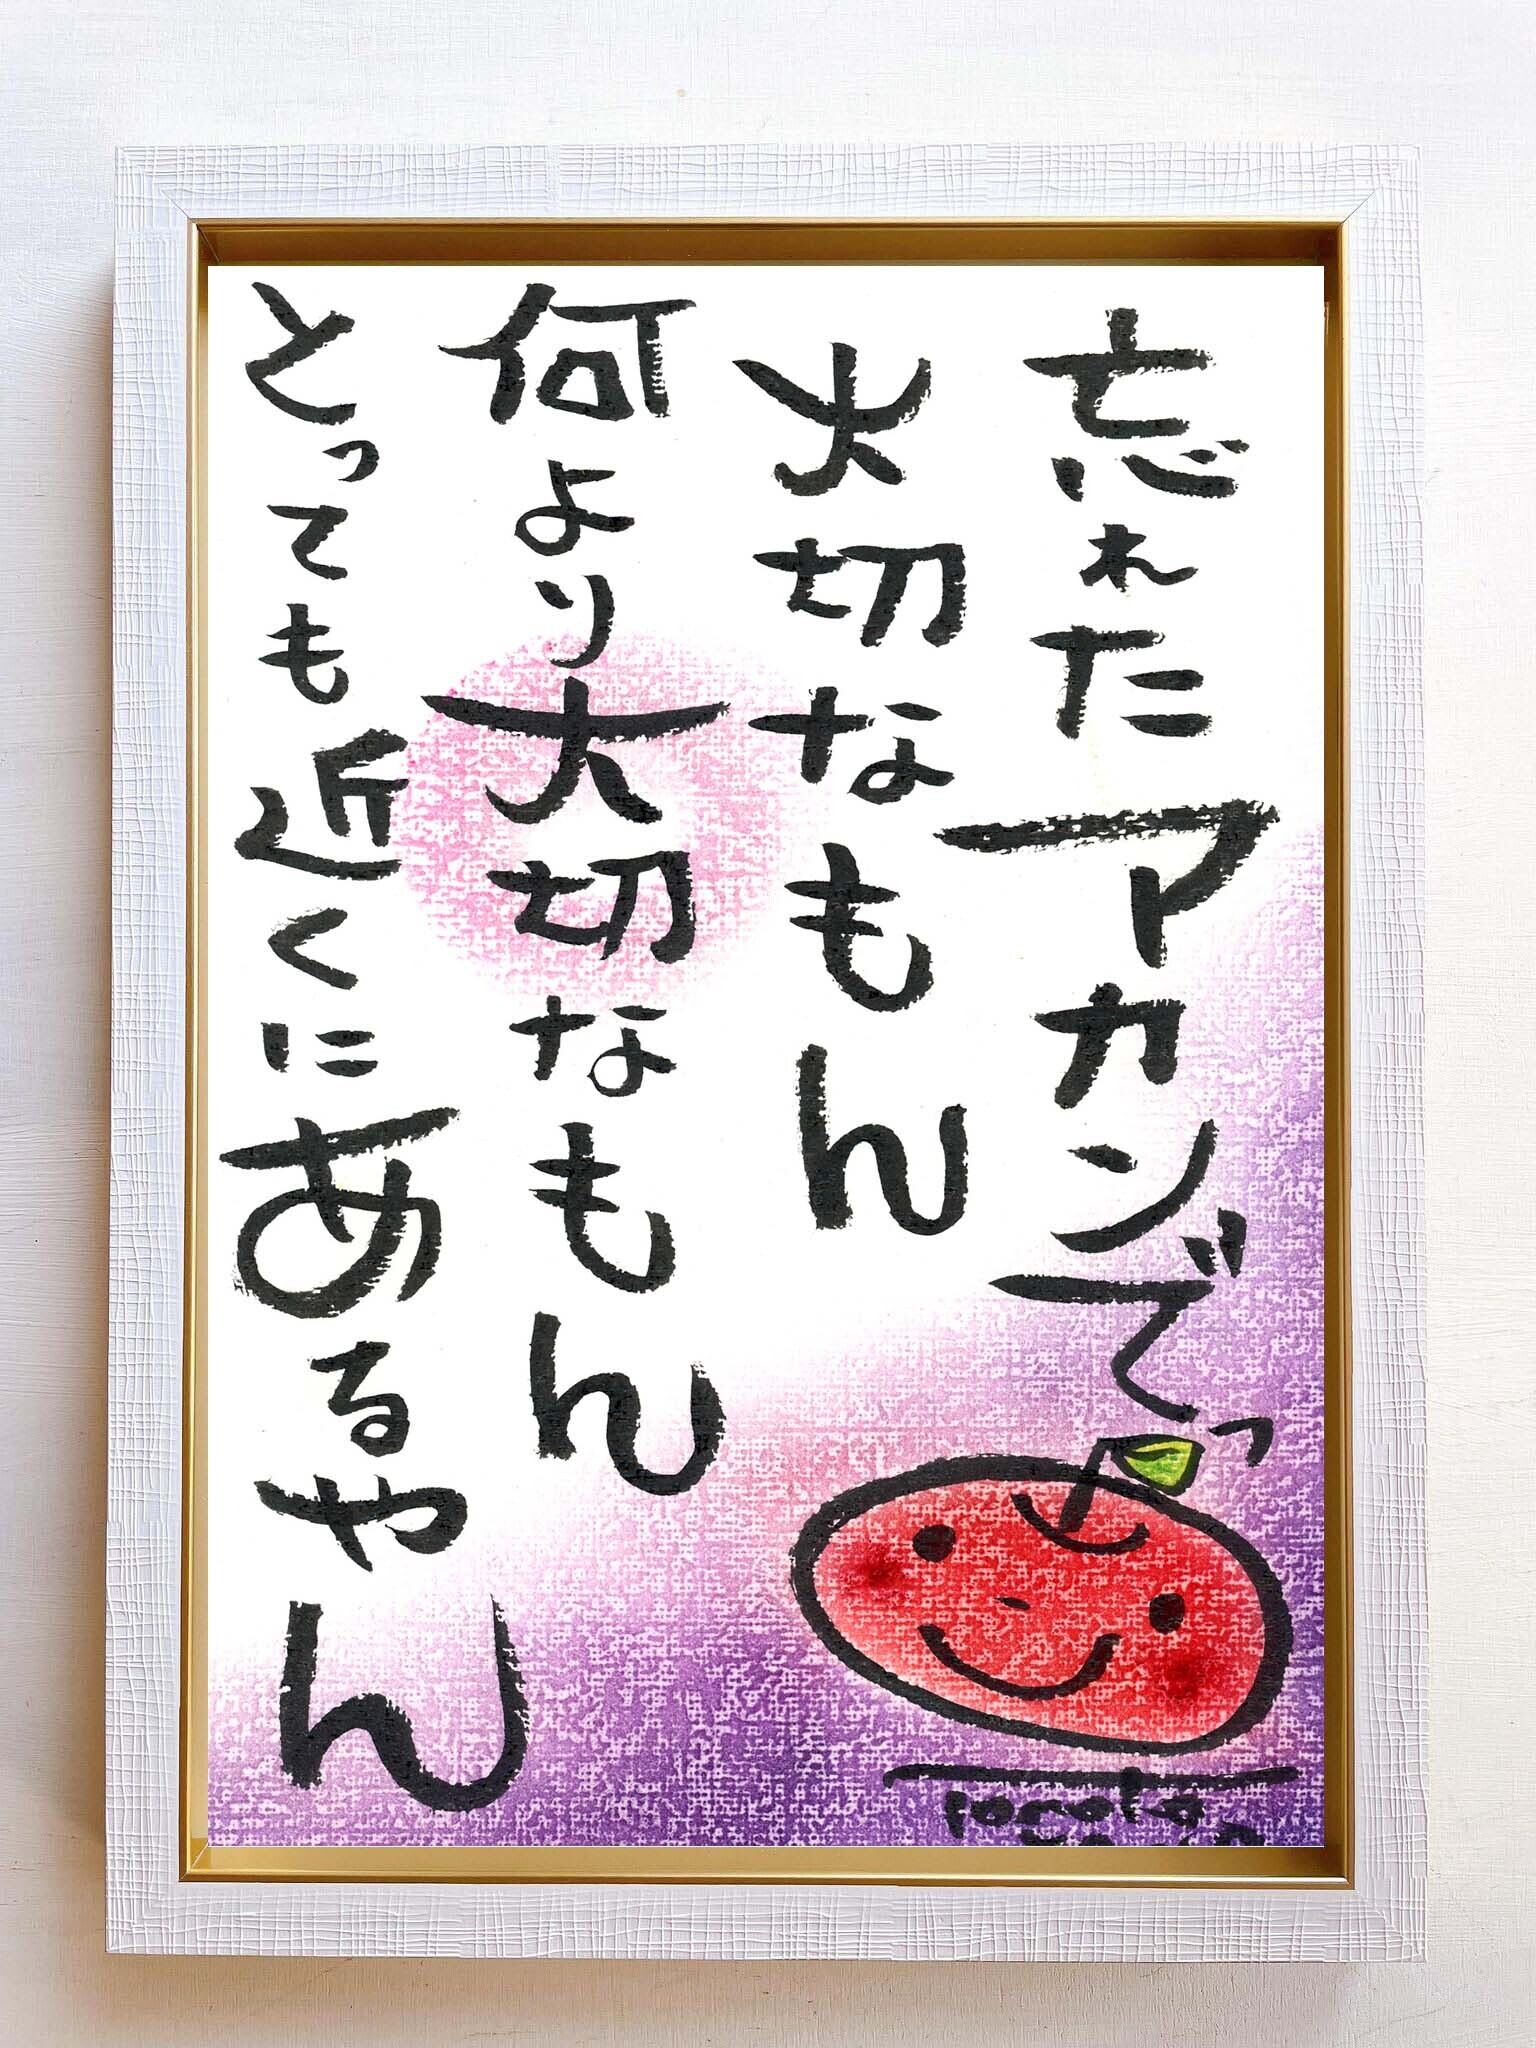 忘れたアカンでっ
大切なもん
何より大切なもん
とっても近くにあるやん